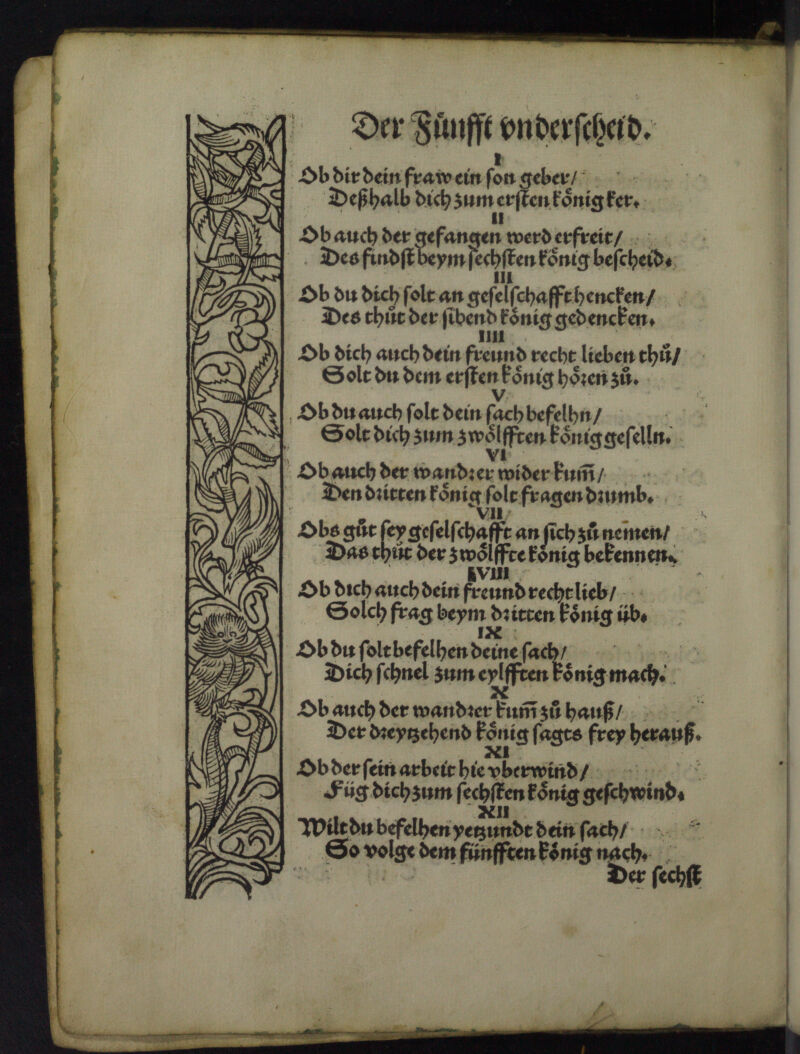 Der Fünfft vnderscheid.
I
Ob dir dein fraw ein son geber/
Deßhalb dich zum ersten könig ker.
II
Ob auch der gefangen werd erfreit/
Des findst beym sechsten könig bescheid.
III
Ob du dich solt an geselschafft hencken/
Des thůt der sibend könig gedencken.
IIII
Ob dich auch dein freund recht lieben thů/
Solt du dem ersten könig hören zů.
V
Ob du auch solt dein sach befelhn/
Solt dich zum zwölfften könig geselln.
VI
Ob auch der wandrer wider kum̃/
Den dritten könig solt fragen drumb.
VII
Obs gůt sey geselschafft an sich zů nemen/
Das thůt der zwölffte könig bekennen.
VIII
Ob dich auch dein freund recht lieb/
Solch frag beym dritten könig üb.
IX
Ob du solt befelhen deine sach/
Dich schnel zum eylfften könig mach.
X
Ob auch der wandrer kum̃ zů hauß/
Der dreyzehend könig sagts frey herauß.
XI
Ob der sein arbeit hie vberwind/
Füg dich zum sechsten könig geschwind.
XII
Wilt du befelhen yetzundt dein sach/
So volge dem fünfften könig nach.
Der sechst